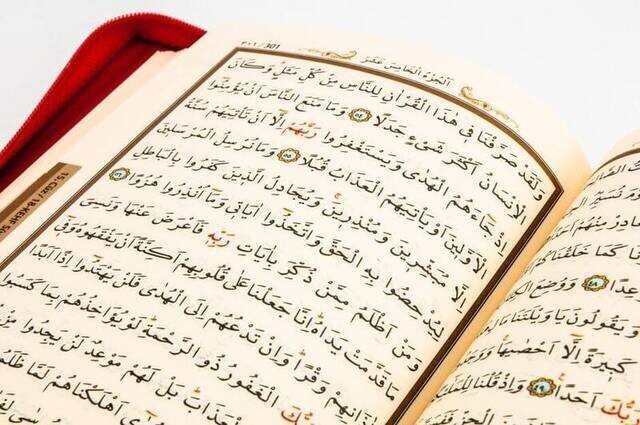 الجزء الخامس عشر
٣٠١ / 301
وَلَقَدْ صَرَّفْنَا فِى هٰذَا الْقُرْاٰنِ لِلنَّاسِ مِنْ كُلِّ مَثَلٍ وَكَانَ
الْاِنْسَانُ اَكْثَرَ شَىْءٍ جَدَلًا ٥٤ وَمَا مَنَعَ النَّاسَ اَنْ يُؤْمِنُوا
اِذْ جَاءَهُمُ الْهُدٰى وَيَسْتَغْفِرُوا رَبَّهُمْ اِلَّا اَنْ تَأْتِيَهُمْ سُنَّةُ
الْاَوَّلِينَ اَوْ يَأْتِيَهُمُ الْعَذَابُ قُبُلًا ٥٥ وَمَا نُرْسِلُ الْمُرْسَلِينَ
اِلَّا مُبَشِّرِينَ وَمُنْذِرِينَ وَيُجَادِلُ الَّذِينَ كَفَرُوا بِالْبَاطِلِ
لِيُدْحِضُوا بِهِ الْحَقَّ وَاتَّخَذُوا اٰيَاتِى وَمَا اُنْذِرُوا هُزُوًا ٥٦
وَمَنْ اَظْلَمُ مِمَّنْ ذُكِّرَ بِاٰيَاتِ رَبِّهِ فَاَعْرَضَ عَنْهَا وَنَسِىَ
مَا قَدَّمَتْ يَدَاهُ اِنَّا جَعَلْنَا عَلٰى قُلُوبِهِمْ اَكِنَّةً اَنْ يَفْقَهُوهُ وَفِى
اٰذَانِهِمْ وَقْرًا وَاِنْ تَدْعُهُمْ اِلَى الْهُدٰى فَلَنْ يَهْتَدُوا اِذًا اَبَدًا
رَبُّكَ الْغَفُورُ ذُو الرَّحْمَةِ لَوْ يُؤَاخِذُهُمْ بِمَا كَسَبُوا
الْعَذَابَ بَلْ لَهُمْ مَوْعِدٌ لَنْ يَجِدُوا مِنْ
اَهْلَكْنَاهُمْ لَمَّا ظَلَمُوا
15.CÜZ / 18-KEHF
كَمَا خَلَقْنَا
٤٨ وَوُضِعَ
وَيَقُولُونَ يَا وَيْلَتَنَا
كَبِيرَةً اِلَّا اَحْصٰيهَا
رَبُّكَ اَحَدًا ٤٩ وَاِذْ قُلْنَا